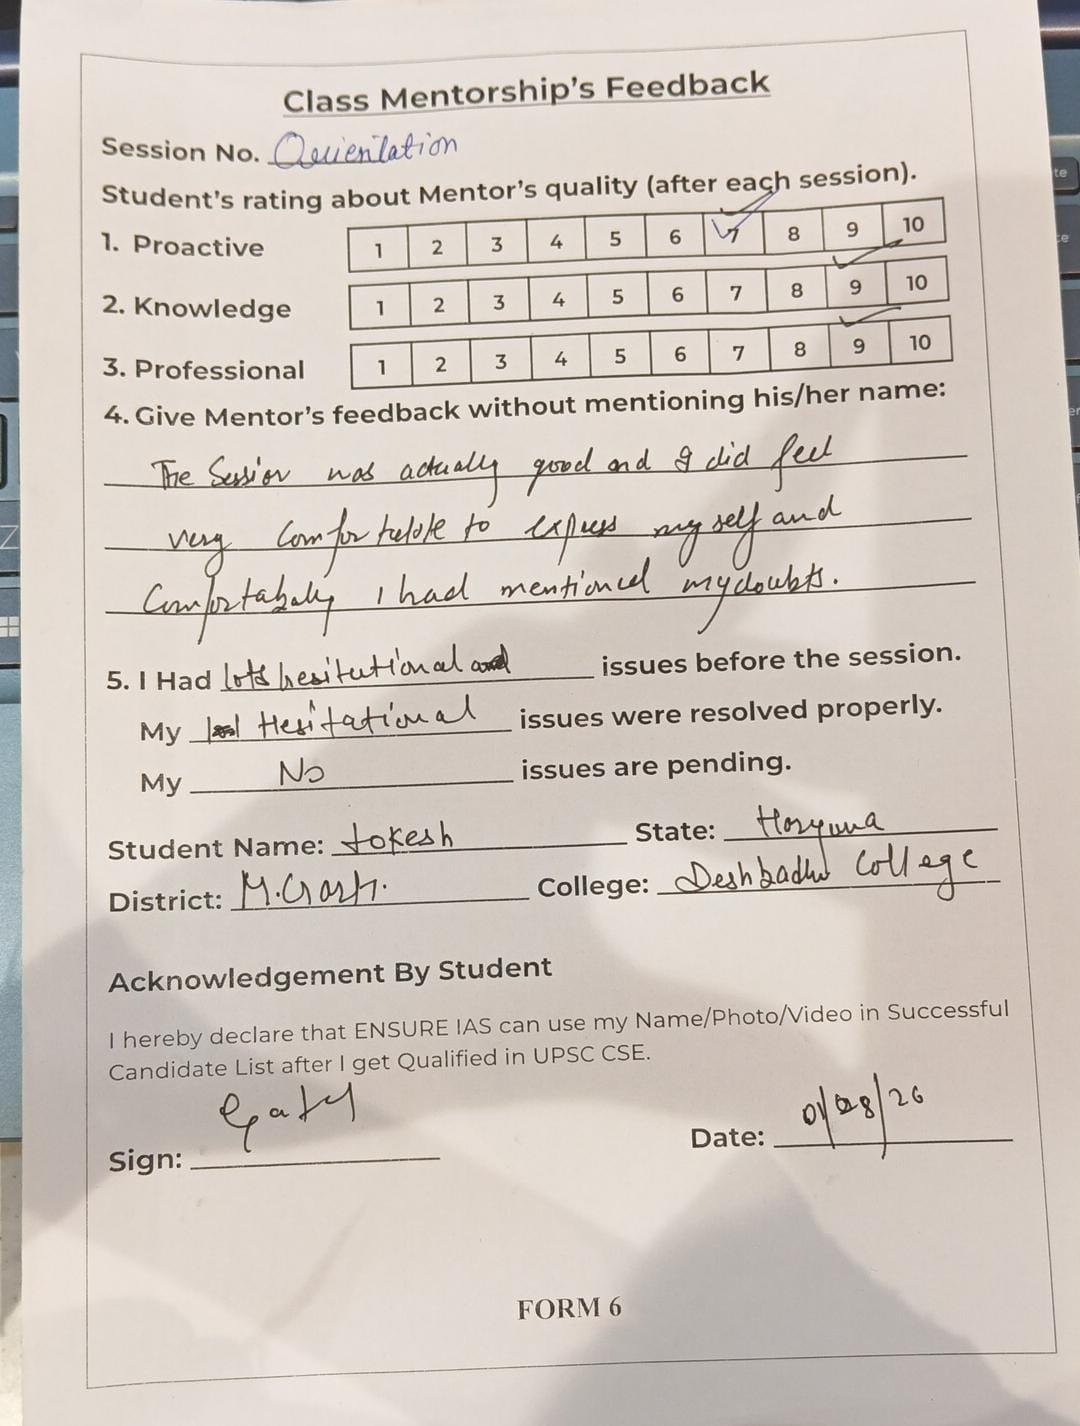 Class Mentorship's Feedback
Session No. Orientation
Student's rating about Mentor's quality (after each session).
1. Proactive 1 2 3 4 5 6 7 8 9 10
2. Knowledge 1 2 3 4 5 6 7 8 9 10
3. Professional 1 2 3 4 5 6 7 8 9 10
4. Give Mentor's feedback without mentioning his/her name:
The Session was actually good and I did feel
very to express my self and
I had mentioned my doubts.
5. I Had lots hesitutional and issues before the session.
My Hesitational issues were resolved properly.
My No issues are pending.
Student Name: State:
District: M.Garh. College: College
Acknowledgement By Student
I hereby declare that ENSURE IAS can use my Name/Photo/Video in Successful
Candidate List after I get Qualified in UPSC CSE.
Sign: Date: 01/08/26
FORM 6